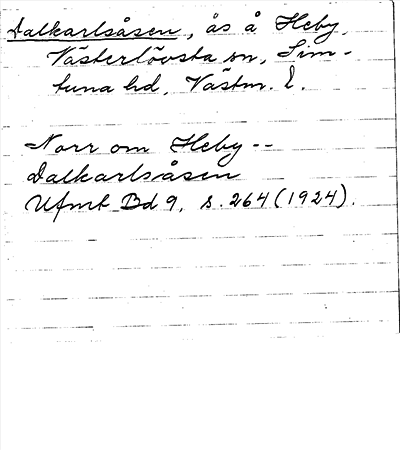 Dalkarlsåsen, ås å Heby,
Västerlövsta sn, Sim-
tuna hd, Västm. l.
Norr om Heby --
Dalkarlsåsen
Ufmt Bd 9, s. 264 (1924).